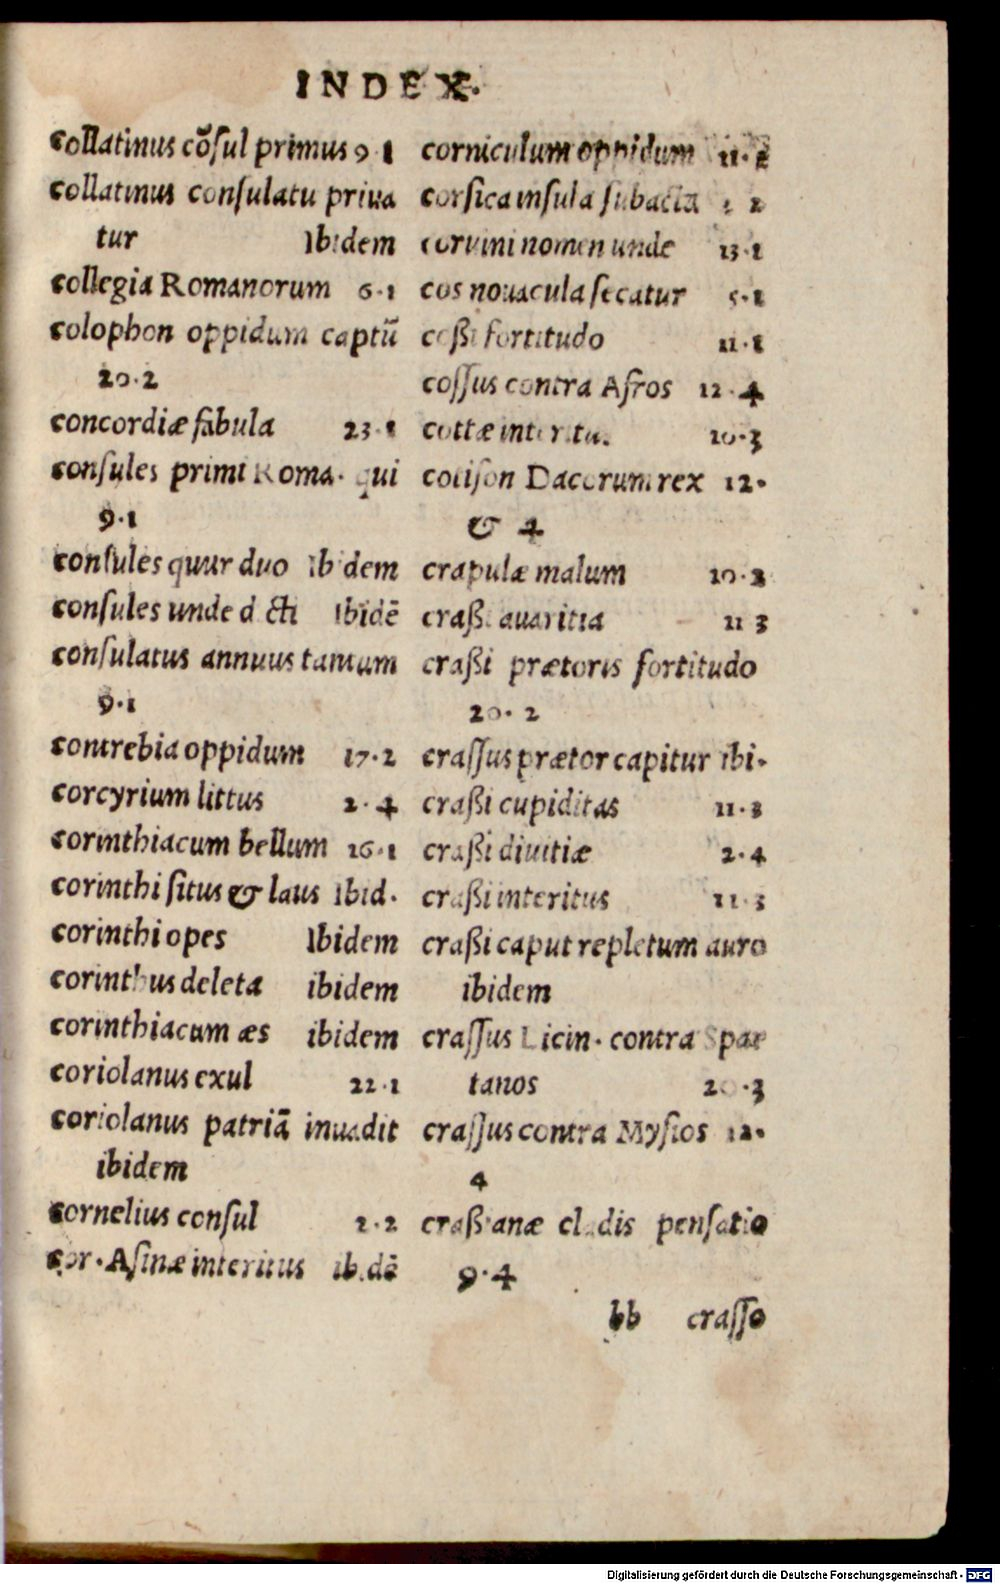 INDEX.
collatinus cõsul primus 9 1
collatinus consulatu priua
tur Ibidem
collegia Romanorum 6·1
colophon oppidum captũ
20·2
concordiæ fabula 23·1
consules primi Roma· qui
9·1
consules quur duo Ibidem
consules unde dicti Ibidẽ
consulatus annuus tantum
9·1
contrebia oppidum 17·2
corcyrium littus 2·4
corinthiacum bellum 16·1
corinthi situs & laus Ibid·
corinthi opes Ibidem
corinthus deleta ibidem
corinthiacum æs ibidem
coriolanus exul 22·1
coriolanus patriã inuadit
ibidem
cornelius consul 2·2
cor·Asinæ interitus ibidẽ
corniculum oppidum 11·
corsica insula subacta 2
coruini nomen unde 13·1
cos nouacula secatur 5·1
coßi fortitudo 11·1
cossus contra Afros 12·4
cottæ interitu. 10·3
cotison Dacorum rex 12·
& 4
crapulæ malum 10·2
craßi auaritia 11 3
craßi prætoris fortitudo
20·2
crassus prætor capitur ibi·
craßi cupiditas 11·3
craßi diuitiæ 2·4
craßi interitus 11·3
craßi caput repletum auro
ibidem
crassus Licin· contra Spar
tanos 20·3
crassus contra Mysios 12·
4
craßianæ cladis pensatio
9·4
bb crasso
Digitalisierung gefördert durch die Deutsche Forschungsgemeinschaft - DFG